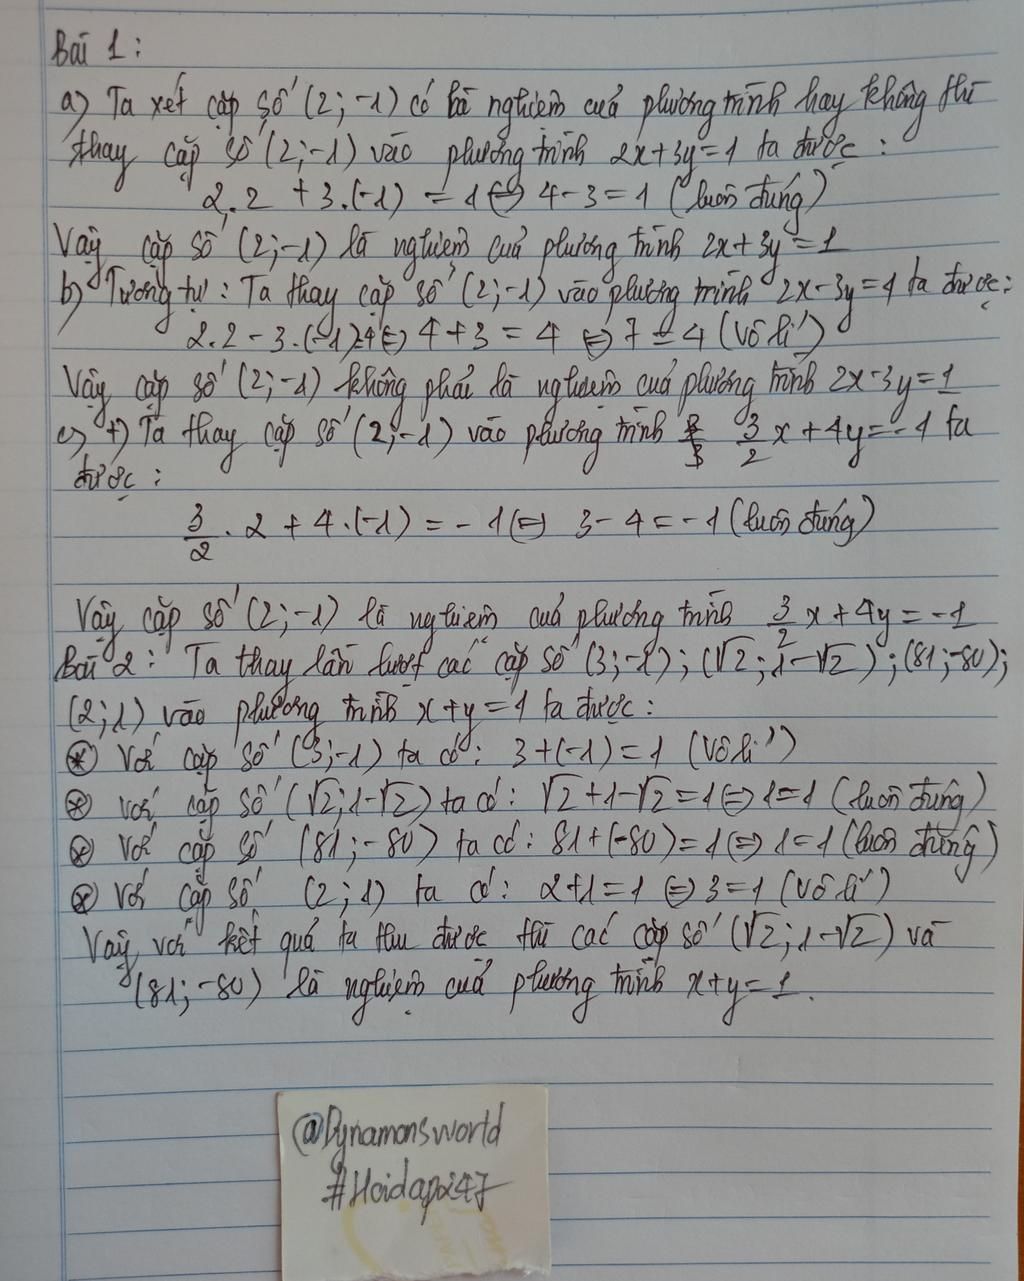 Bài 1:
a) Ta xét cặp số (2;-1) có là nghiệm của phương trình hay không thì
thay cặp số (2;-1) vào phương trình 2x+3y=1 ta được:
2.2 + 3.(-1) = 1 ⇔ 4-3=1 (luôn đúng)
Vậy cặp số (2;-1) là nghiệm của phương trình 2x+3y=1
b) Tương tự: Ta thay cặp số (2;-1) vào phương trình 2x-3y=1 ta được:
2.2-3.(-1)=4 ⇔ 4+3=4 ⇔ 7=4 (vô lí)
Vậy cặp số (2;-1) không phải là nghiệm của phương trình 2x-3y=1
c) +) Ta thay cặp số (2;-1) vào phương trình 3/2x+4y=-1 ta
được:
3/2.2+4.(-1)=-1 ⇔ 3-4=-1 (luôn đúng)
Vậy cặp số (2;-1) là nghiệm của phương trình 3/2x+4y=-1
Bài 2: Ta thay lần lượt các cặp số (3;-1); (√2;1-√2); (81;-80);
(2;1) vào phương trình x+y=1 ta được:
⊛ Với cặp số (3;-1) ta có: 3+(-1)=1 (vô lí)
⊛ Với cặp số (√2;1-√2) ta có: √2+1-√2=1 ⇔ 1=1 (luôn đúng)
⊛ Với cặp số (81;-80) ta có: 81+(-80)=1 ⇔ 1=1 (luôn đúng)
⊛ Với cặp số (2;1) ta có: 2+1=1 ⇔ 3=1 (vô lí)
Vậy, với kết quả ta thu được thì các cặp số (√2;1-√2) và
(81;-80) là nghiệm của phương trình x+y=1.
@Dynamonsworld
#Hoidap247